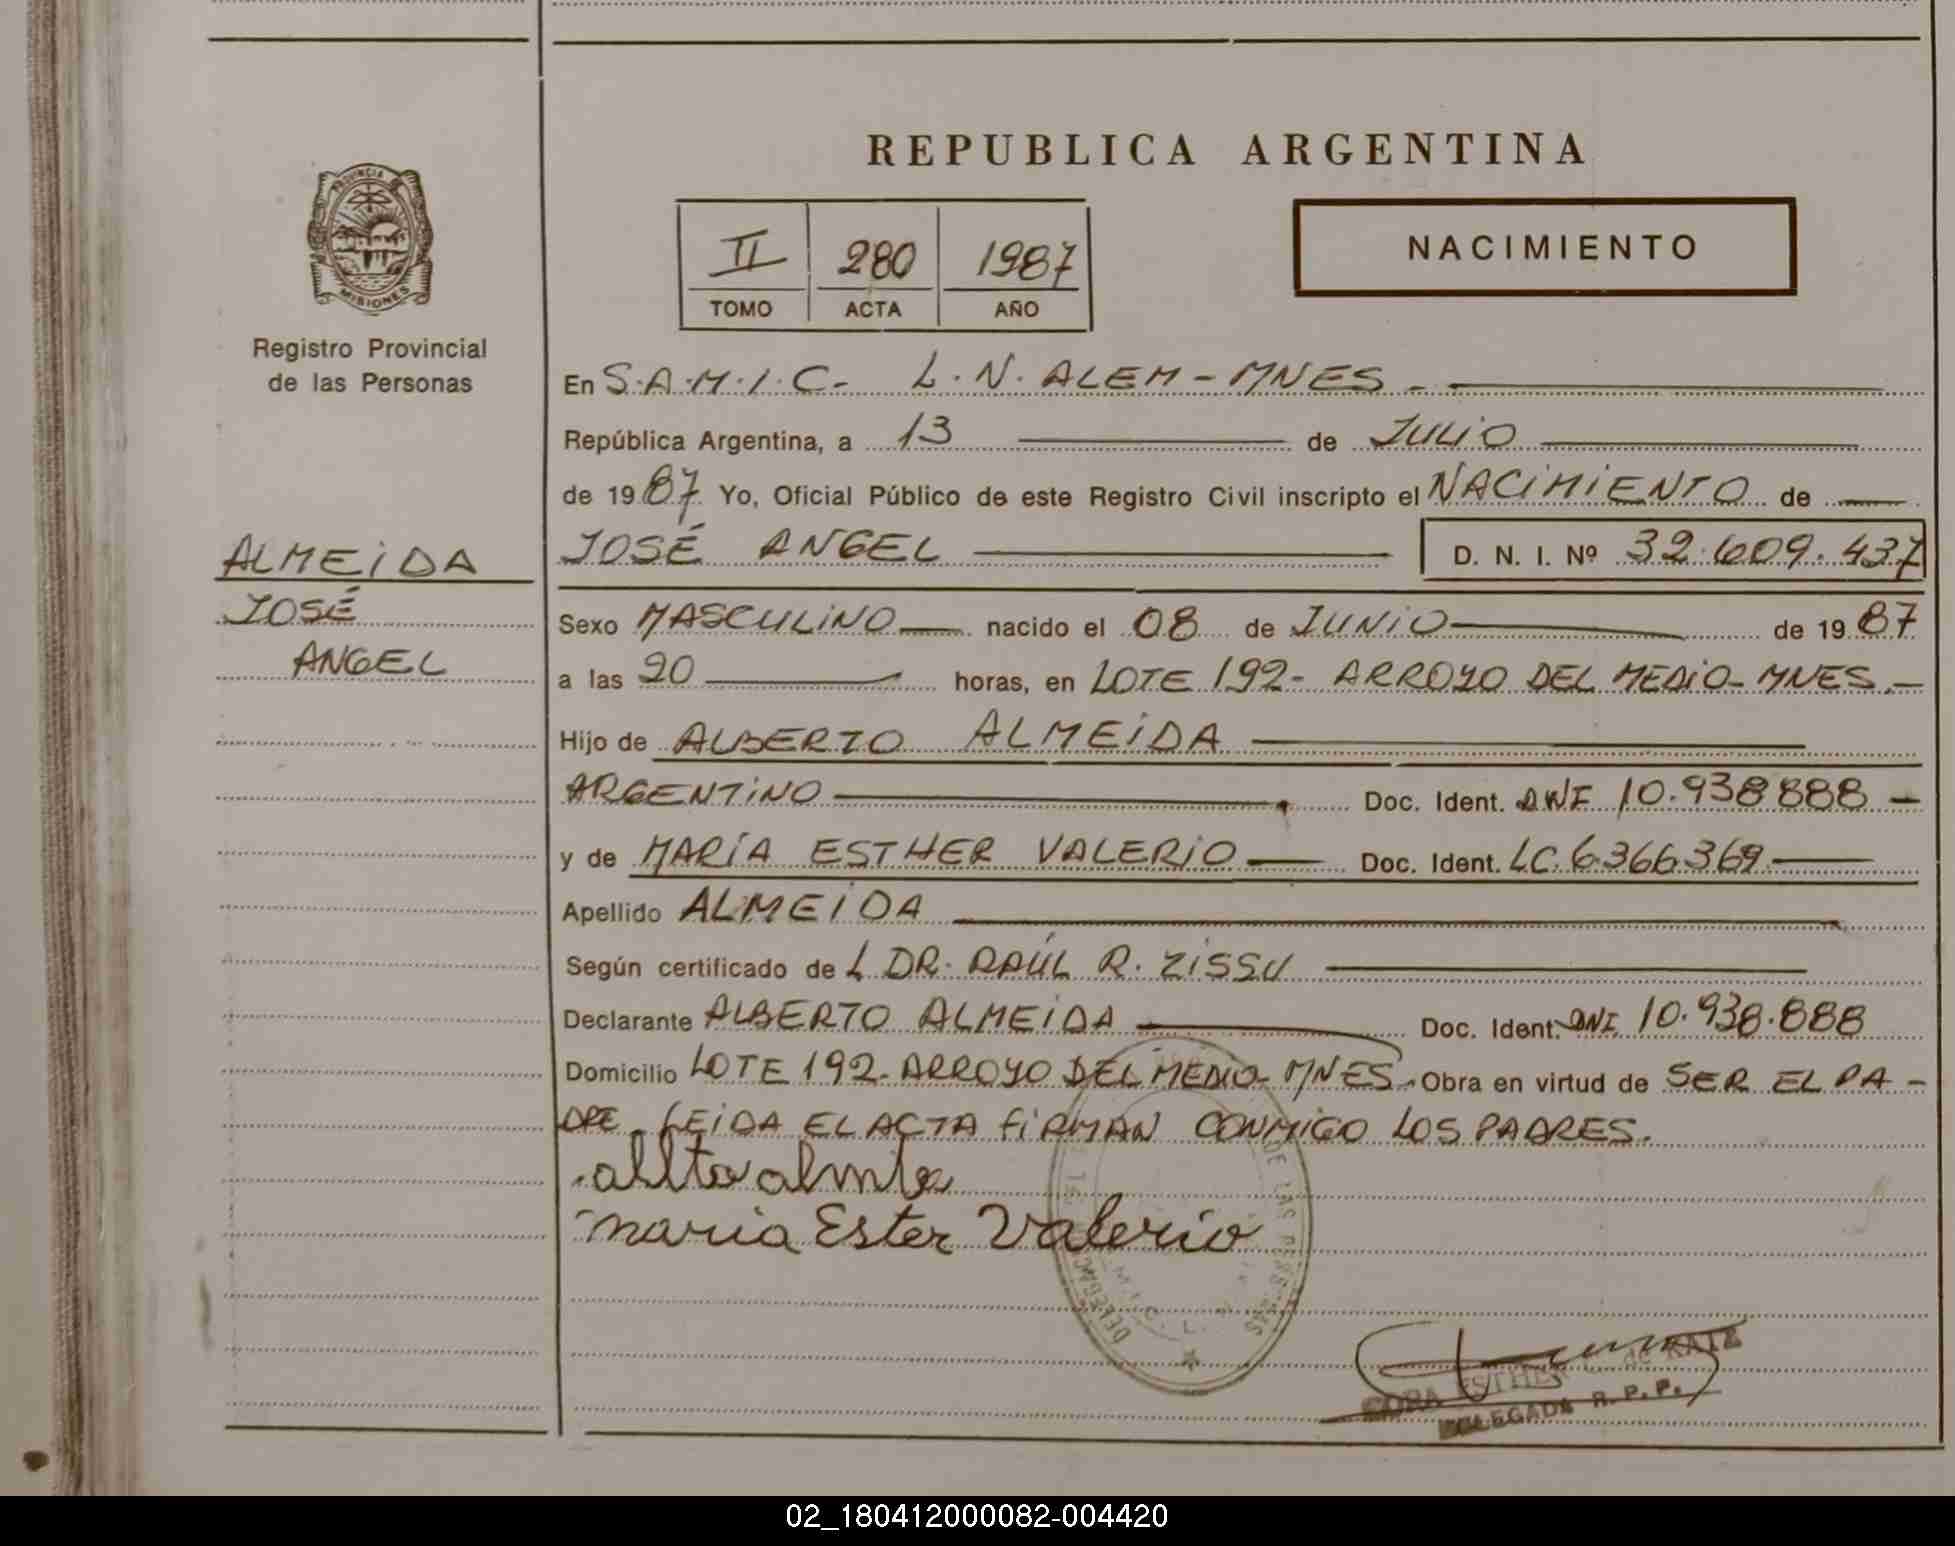 REPUBLICA ARGENTINA
PROVINCIA DE
MISIONES
Registro Provincial
de las Personas
II 280 1987
TOMO ACTA AÑO
NACIMIENTO
En S.A.M.I.C- L.N. ALEM-MNES.
República Argentina, a 13 de JULIO
de 1987 Yo, Oficial Público de este Registro Civil inscripto el NACIMIENTO de
ALMEIDA
JOSÉ
ANGEL
JOSÉ ANGEL D. N. I. Nº 32.609.437
Sexo MASCULINO nacido el 08 de JUNIO de 1987
a las 20 horas, en LOTE 192- ARROYO DEL MEDIO-MNES.-
Hijo de ALBERTO ALMEIDA
ARGENTINO Doc. Ident. DNI 10.938888
y de MARÍA ESTHER VALERIO Doc. Ident. LC.6.366.369
Apellido ALMEIDA
Según certificado de L DR. RAÚL R. ZISSU
Declarante ALBERTO ALMEIDA Doc. Ident. DNI. 10.938.888
Domicilio LOTE 192-ARROYO DEL MEDIO-MNES. Obra en virtud de SER EL PA-
DRE. LEIDA EL ACTA FIRMAN CONMIGO LOS PADRES.
maria Ester Valerio
DE LAS PERSONAS
ESTHER de KATZ
DELEGADA R.P.P.
02_180412000082-004420